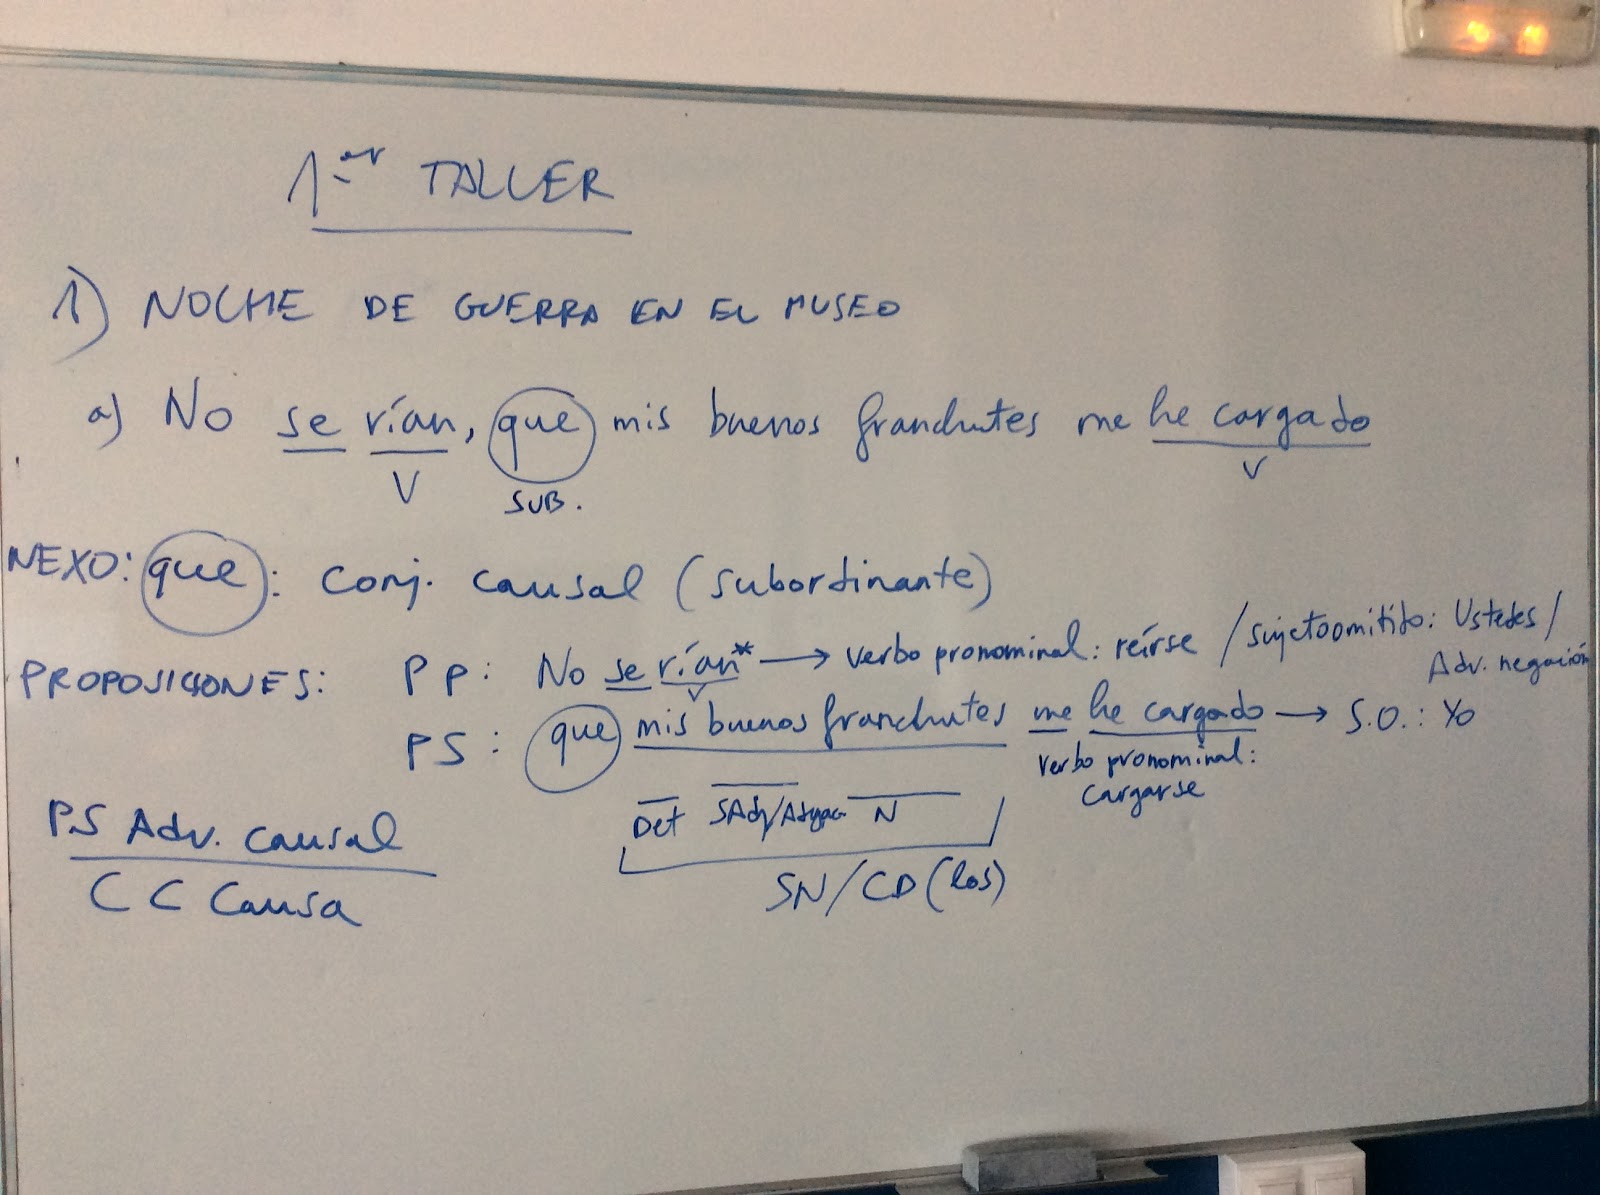 1er TALLER
1) NOCHE DE GUERRA EN EL MUSEO
a) No se rían, que mis buenos franchutes me he cargado
V SUB. V
NEXO: que: Conj. causal (subordinante)
PROPOSICIONES: PP: No se rían* → verbo pronominal: reírse / sujeto omitido: Ustedes /
V Adv. negación
PS: que mis buenos franchutes me he cargado → S.O.: Yo
verbo pronominal:
cargarse
Det SAdj/Adyac N
SN/CD (los)
PS Adv. causal
CC Causa